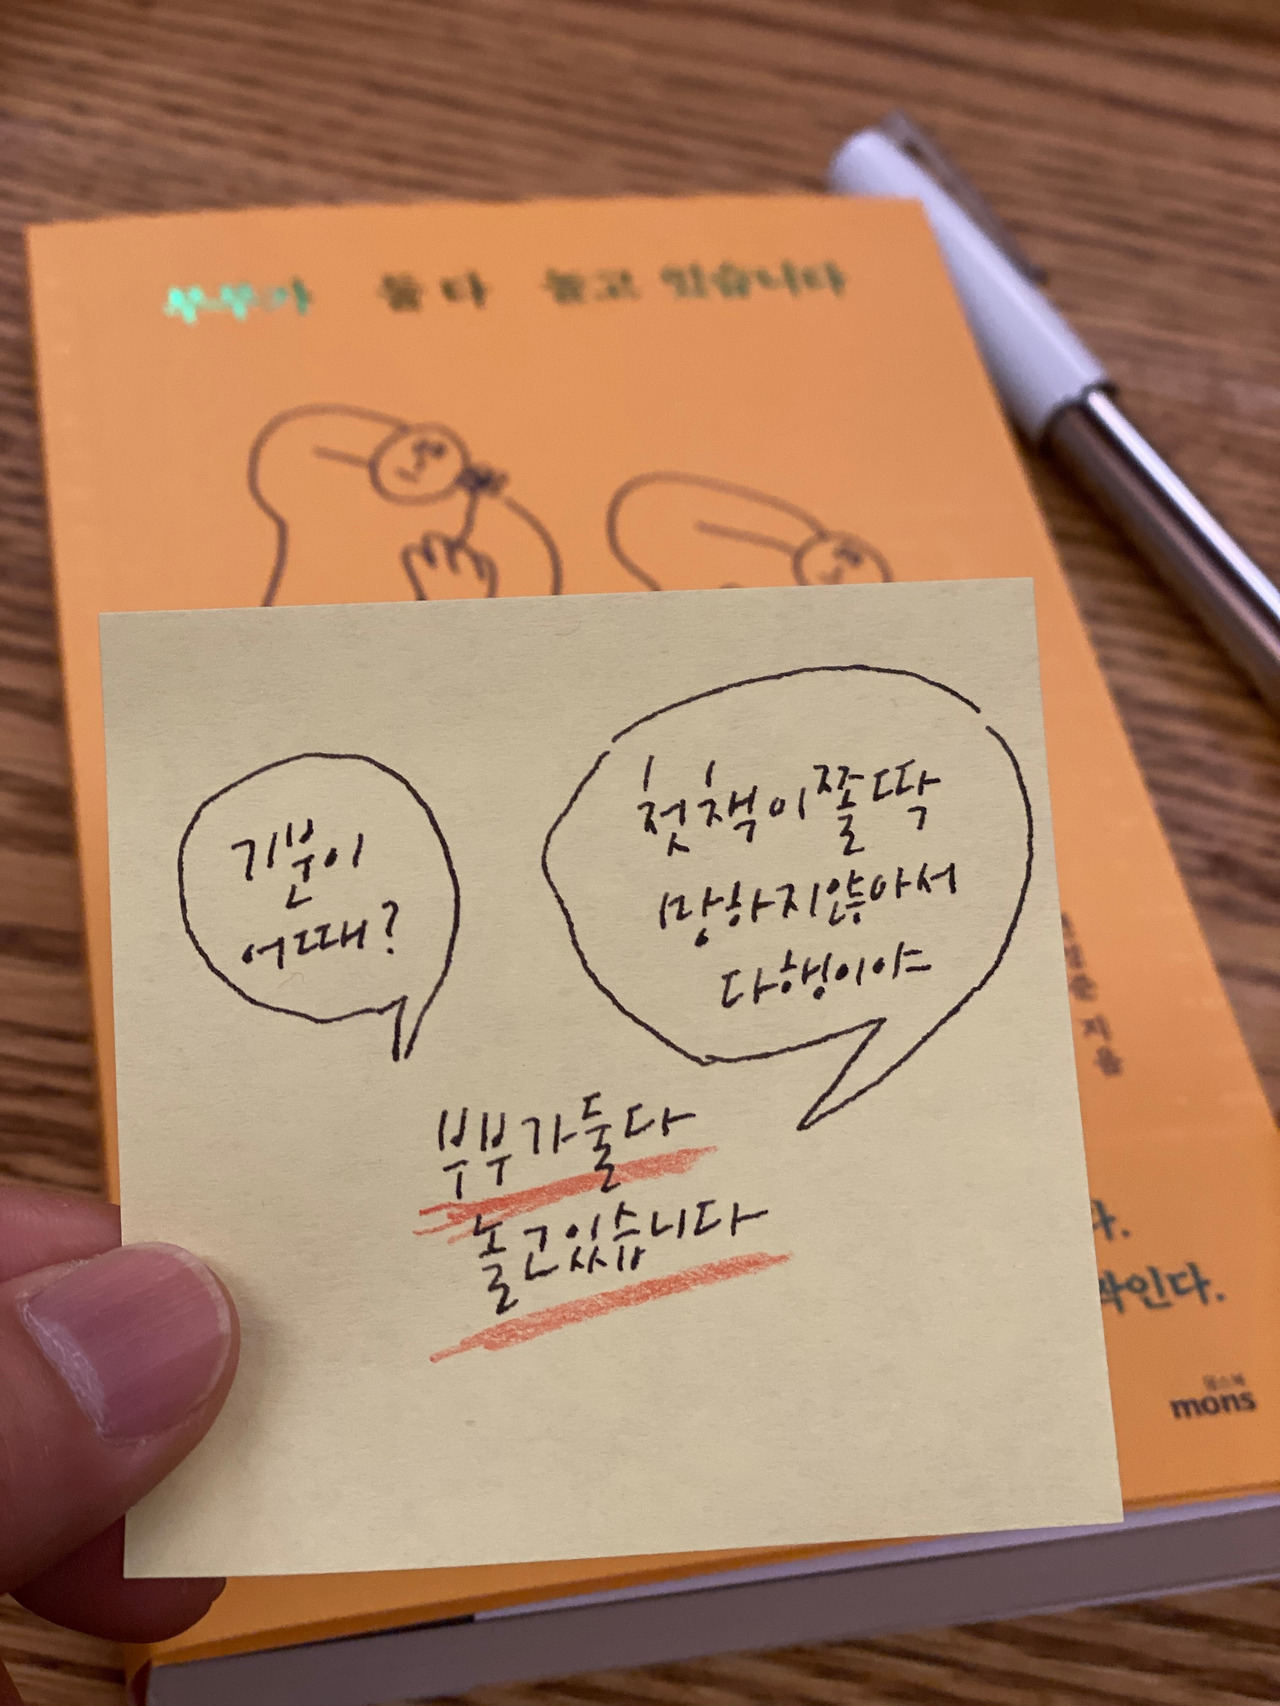 부부가 둘 다 놀고 있습니다
기분이
어때?
첫 책이 쫄딱
망하지 않아서
다행이야
부부가 둘 다
놀고 있습니다
지음
다.
작인다.
몽스북
mons